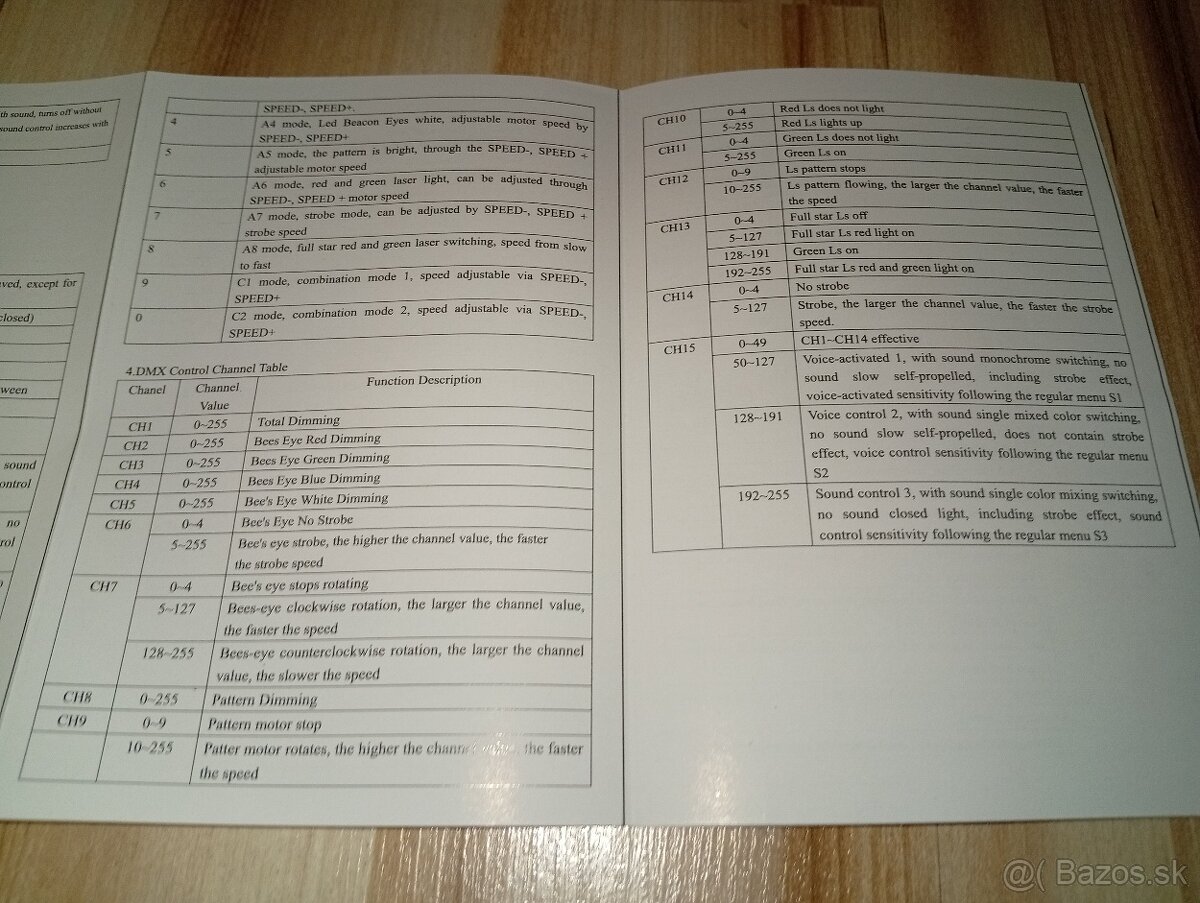 th sound, turns off without
sound control increases with
ved, except for
closed)
ween
sound
ontrol
no
rol
SPEED-, SPEED+.
4 A4 mode, Led Beacon Eyes white, adjustable motor speed by
SPEED-, SPEED+
5 A5 mode, the pattern is bright, through the SPEED-, SPEED +
adjustable motor speed
6 A6 mode, red and green laser light, can be adjusted through
SPEED-, SPEED + motor speed
7 A7 mode, strobe mode, can be adjusted by SPEED-, SPEED +
strobe speed
8 A8 mode, full star red and green laser switching, speed from slow
to fast
9 C1 mode, combination mode 1, speed adjustable via SPEED-,
SPEED+
0 C2 mode, combination mode 2, speed adjustable via SPEED-,
SPEED+
4.DMX Control Channel Table
Chanel Channel Function Description
Value
CH1 0~255 Total Dimming
CH2 0~255 Bees Eye Red Dimming
CH3 0~255 Bees Eye Green Dimming
CH4 0~255 Bees Eye Blue Dimming
CH5 0~255 Bee's Eye White Dimming
CH6 0~4 Bee's Eye No Strobe
5~255 Bee's eye strobe, the higher the channel value, the faster
the strobe speed
CH7 0~4 Bee's eye stops rotating
5~127 Bees-eye clockwise rotation, the larger the channel value,
the faster the speed
128~255 Bees-eye counterclockwise rotation, the larger the channel
value, the slower the speed
CH8 0~255 Pattern Dimming
CH9 0~9 Pattern motor stop
10~255 Patter motor rotates, the higher the the faster
the speed
CH10 0~4 Red Ls does not light
5~255 Red Ls lights up
CH11 0~4 Green Ls does not light
5~255 Green Ls on
CH12 0~9 Ls pattern stops
10~255 Ls pattern flowing, the larger the channel value, the faster
the speed
CH13 0~4 Full star Ls off
5~127 Full star Ls red light on
128~191 Green Ls on
192~255 Full star Ls red and green light on
CH14 0~4 No strobe
5~127 Strobe, the larger the channel value, the faster the strobe
speed.
CH15 0~49 CH1~CH14 effective
50~127 Voice-activated 1, with sound monochrome switching, no
sound slow self-propelled, including strobe effect,
voice-activated sensitivity following the regular menu S1
128~191 Voice control 2, with sound single mixed color switching,
no sound slow self-propelled, does not contain strobe
effect, voice control sensitivity following the regular menu
S2
192~255 Sound control 3, with sound single color mixing switching,
no sound closed light, including strobe effect, sound
control sensitivity following the regular menu S3
@( Bazos.sk